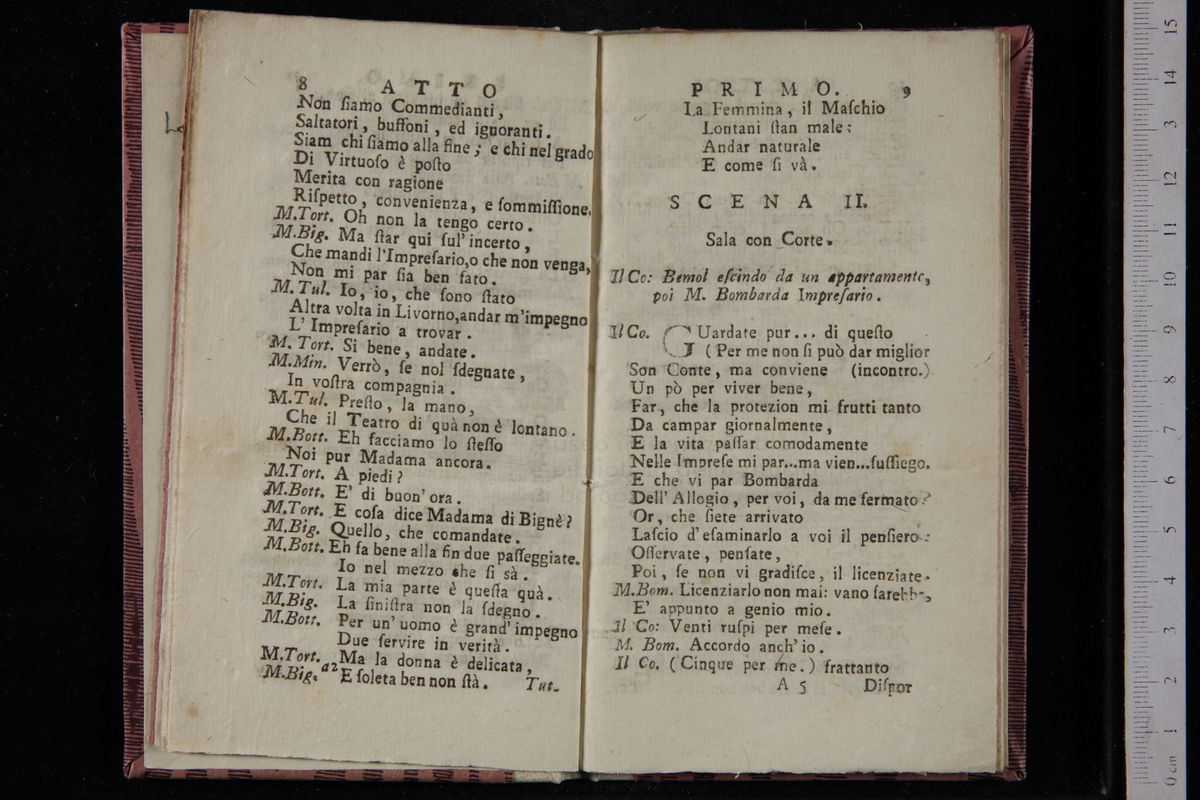 8 ATTO
Non ſiamo Commedianti,
Saltatori, buffoni, ed ignoranti.
Siam chi ſiamo alla fine; e chi nel grado
Di Virtuoſo è poſto
Merita con ragione
Riſpetto, convenienza, e ſommiſſione.
M.Tort. Oh non la tengo certo.
M.Big. Ma ſtar qui ſul' incerto,
Che mandi l'Impreſario,o che non venga,
Non mi par ſia ben fato.
M. Tul. Io, io, che ſono ſtato
Altra volta in Livorno,andar m'impegno
L' Impreſario a trovar.
M. Tort. Si bene, andate.
M.Min. Verrò, ſe nol ſdegnate,
In voſtra compagnia.
M.Tul. Preſto, la mano,
Che il Teatro di quà non è lontano.
M.Bott. Eh facciamo lo ſteſſo
Noi pur Madama ancora.
M.Tort. A piedi?
M.Bott. E' di buon' ora.
M.Tort. E coſa dice Madama di Bignè?
M.Big. Quello, che comandate.
M.Bott. Eh fa bene alla fin due paſſeggiate.
Io nel mezzo che ſi sà.
M.Tort. La mia parte è queſta quà.
M.Big. La ſiniſtra non la ſdegno.
M.Bott. Per un' uomo è grand' impegno
Due ſervire in verità.
M.Tort. Ma la donna è delicata,
M.Big. a2 E ſoleta ben non ſtà. Tut-
PRIMO. 9
La Femmina, il Maſchio
Lontani ſtan male:
Andar naturale
E come ſi và.
SCENA II.
Sala con Corte.
Il Co: Bemol eſcindo da un appartamento,
poi M. Bombarda Impreſario.
Il Co. GUardate pur... di queſto
(Per me non ſi può dar miglior
Son Conte, ma conviene (incontro.)
Un pò per viver bene,
Far, che la protezion mi frutti tanto
Da campar giornalmente,
E la vita paſſar comodamente
Nelle Impreſe mi par...ma vien...ſuſſiego.
E che vi par Bombarda
Dell' Allogio, per voi, da me fermato?
Or, che ſiete arrivato
Laſcio d' eſaminarlo a voi il penſiero:
Oſſervate, penſate,
Poi, ſe non vi gradiſce, il licenziate.
M.Bom. Licenziarlo non mai: vano ſarebbe,
E' appunto a genio mio.
Il Co: Venti ruſpi per meſe.
M. Bom. Accordo anch' io.
Il Co. (Cinque per me.) frattanto
A 5 Diſpor